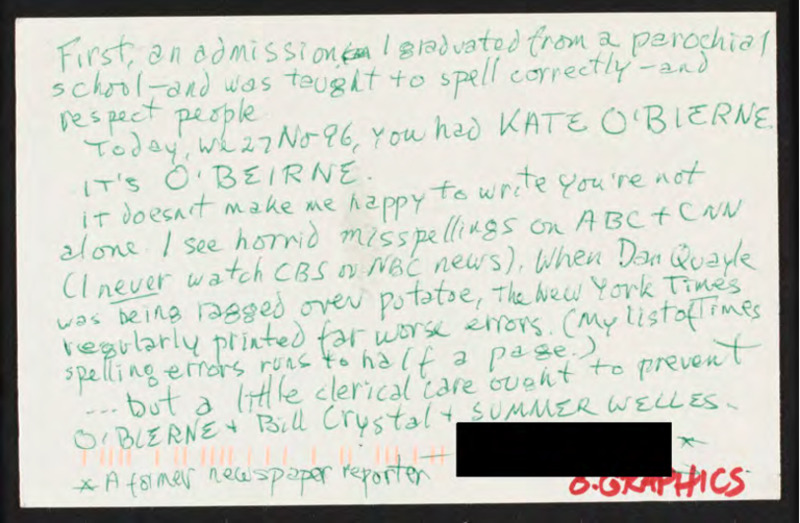 First, an admission I graduated from a parochial
school—and was taught to spell correctly—and
respect people
Today, We 27 No 96, you had KATE O'BIERNE.
IT'S O'BEIRNE.
it doesn't make me happy to write you're not
alone. I see horrid misspellings on ABC + CNN
(I never watch CBS or NBC news). When Dan Quayle
was being ragged over potatoe, The New York Times
regularly printed far worse errors. (My list of Times
spelling errors runs to half a page.)
... but a little clerical care ought to prevent
O'BIERNE + Bill Crystal + SUMMER WELLES.
*
* A former newspaper reporter
O-GRAPHICS